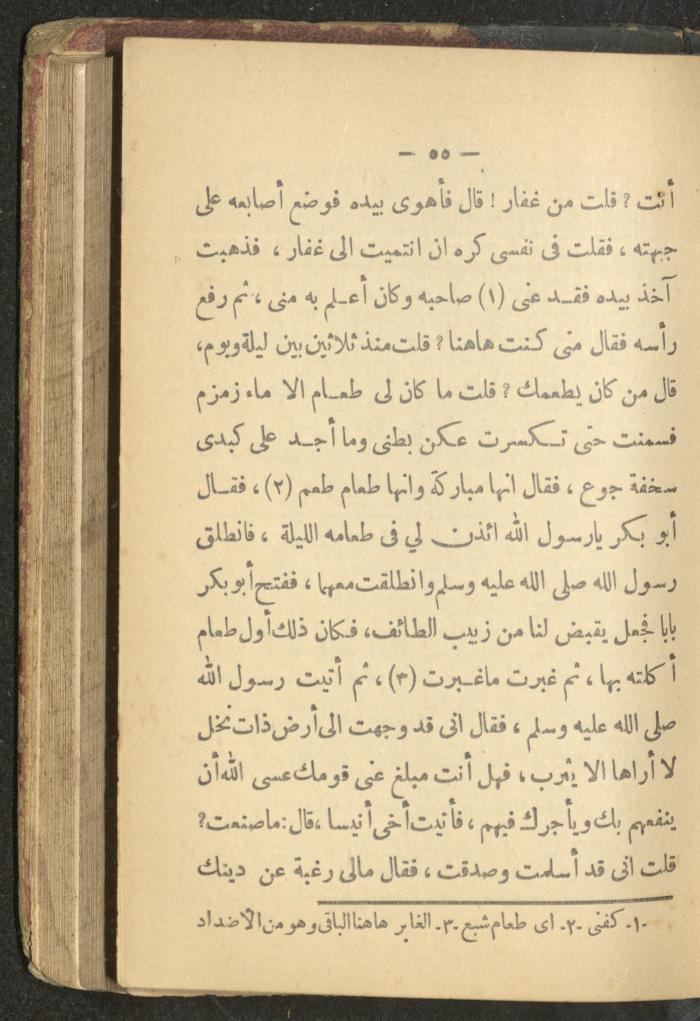 — ٥٥ —
أنت ? قلت من غفار ! قال فأهوى بيده فوضع أصابعه على
جبهته ، فقلت فى نفسى كره ان انتميت الى غفار ، فذهبت
آخذ بيده فقـد عنى (١) صاحبه وكان أعـلم به منى ، ثم رفع
رأسه فقال متى كـنت هاهنا ? قلت منذ ثلاثين بين ليلة ويوم،
قال من كان يطعمك ? قلت ما كان لى طعـام الا ماء زمزم
فسمنت حتى تـكسرت عكن بطنى وما أجـد على كبدى
سخفة جوع ، فقال انها مباركة وانها طعام طعم (٢) ، فقـال
أبو بكر يارسول الله ائذن لي فى طعامه الليلة ، فانطلق
رسول الله صلى الله عليه وسلم وانطلقت معهما ، ففتح أبو بكر
بابا فجعل يقبض لنا من زبيب الطائف، فـكان ذلك أول طعام
أ كلته بها ، ثم غبرت ماغـبرت (٣) ، ثم أتيت رسول الله
صلى الله عليه وسلم ، فقال انى قد وجهت الى أرض ذات نخل
لا أراها الا يثرب ، فهل أنت مبلغ عنى قومك عسى الله أن
ينفعهم بك ويأجرك فيهم ، فأتيت أخى أنيسا ، قال : ماصنعت ?
قلت انى قد أسلمت وصدقت ، فقال مالى رغبة عن دينك
-١- كفنى -٢- اى طعام شبع -٣- الغابر هاهنا الباقى وهو من الأضداد